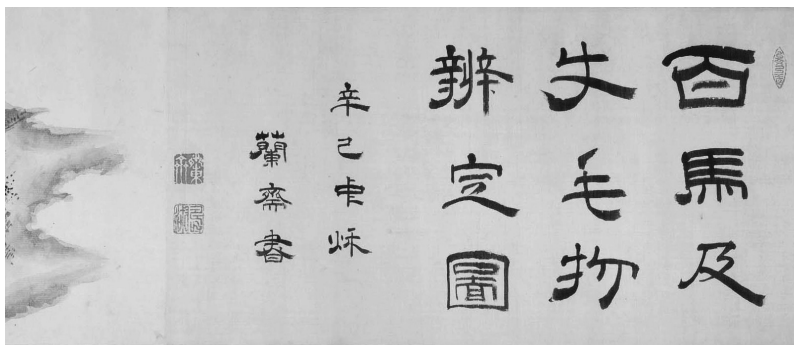 百馬及
毛物
辨定圖
辛巳中秌
蘭齋書